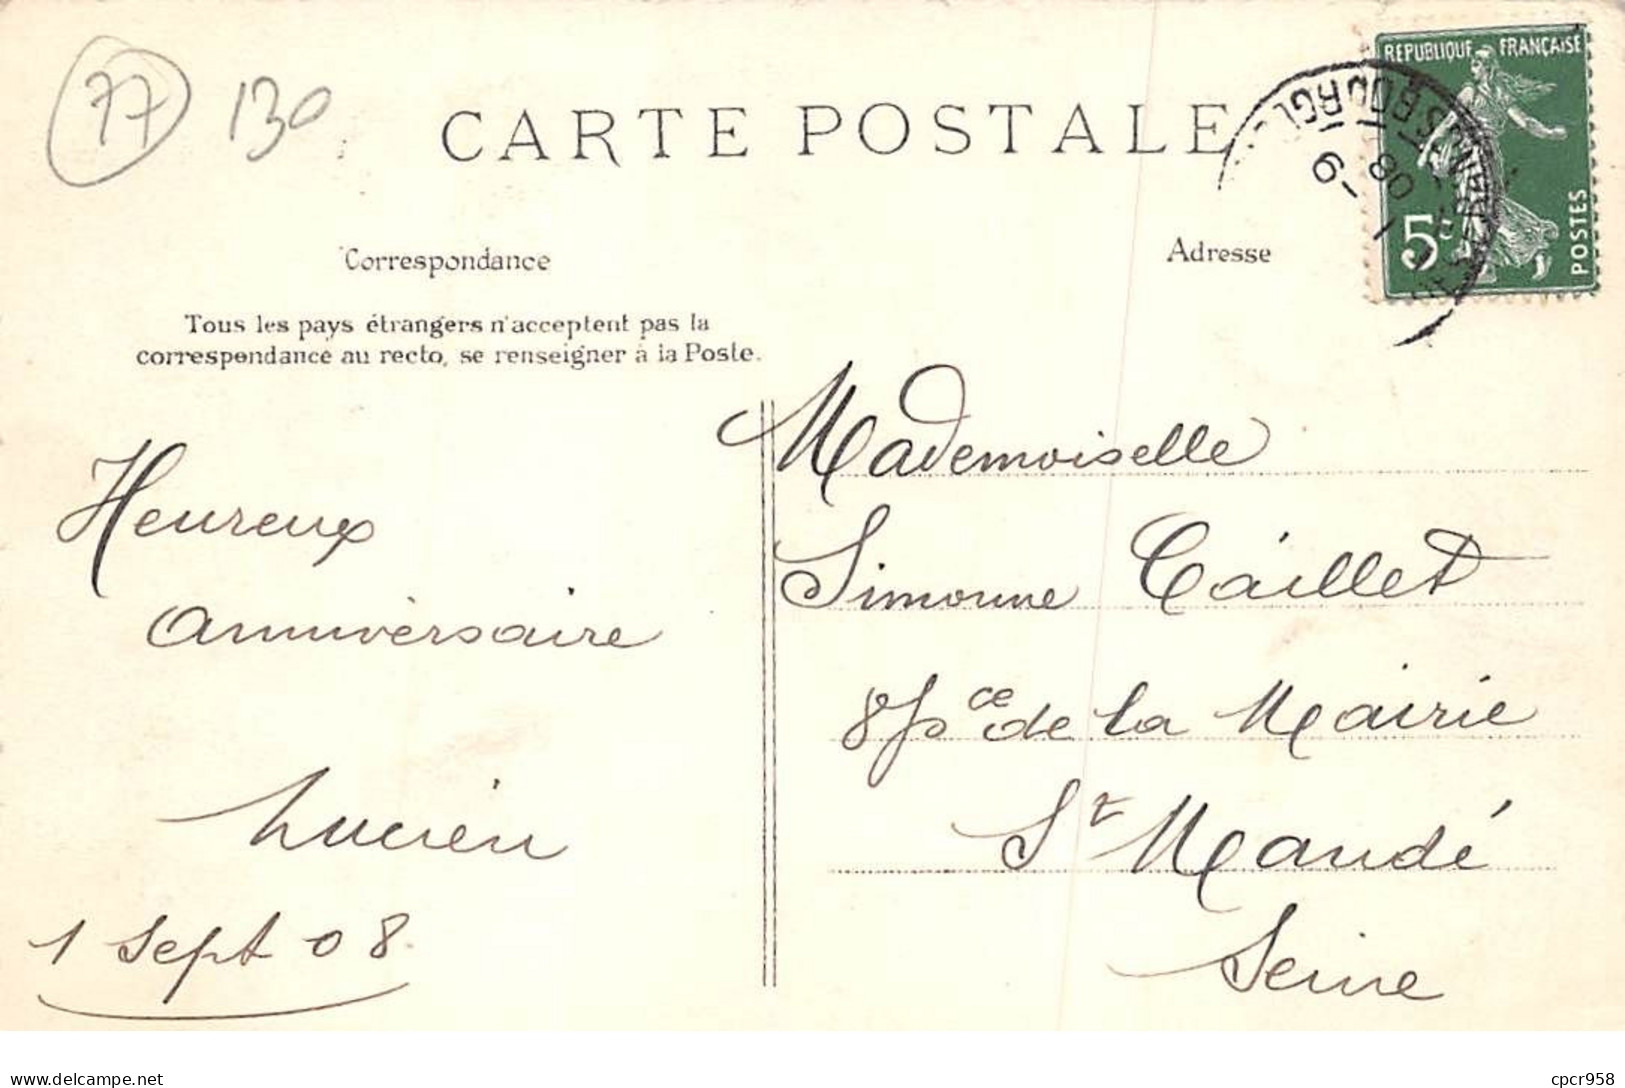 77 130
CARTE POSTALE
REPUBLIQUE FRANÇAISE
5c
POSTES
1 -9
08
Correspondance
Adresse
Tous les pays étrangers n'acceptent pas la
correspondance au recto, se renseigner à la Poste.
Heureux
anniversaire
Lucien
1 Sept 08
Mademoiselle
Simonne Caillet
8 pce de la Mairie
St Mandé
Seine
delcampe.net
cpcr958